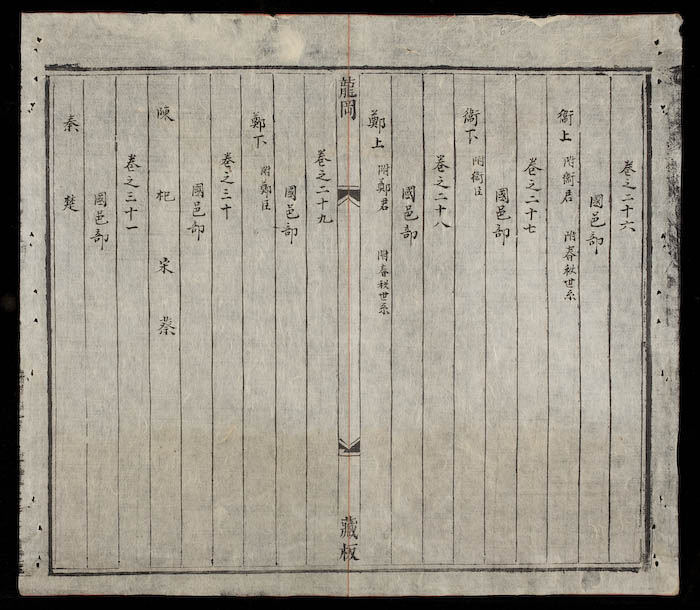 卷之二十六
國邑部
衞上 附衞君 附春秋世系
卷之二十七
國邑部
衞下 附衞臣
卷之二十八
國邑部
鄭上 附鄭君 附春秋世系
龍岡
藏板
卷之二十九
國邑部
鄭下 附鄭臣
卷之三十
國邑部
陳 杞 宋 蔡
卷之三十一
國邑部
秦 楚